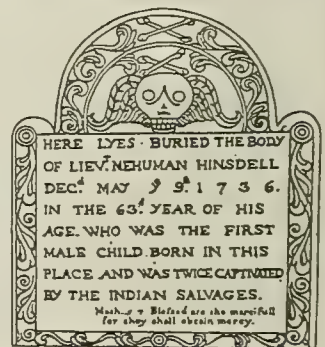 HERE LYES · BURIED THE BODY
OF LIEVT. NEHUMAN HINSDELL
DECD. MAY Ye 9th. 1 7 3 6.
IN THE 63d. YEAR OF HIS
AGE. WHO WAS THE FIRST
MALE CHILD BORN IN THIS
PLACE AND WAS TWICE CAPTIVATED
BY THE INDIAN SALVAGES.
Blessed are the mercifull
for they shall obtain mercy.